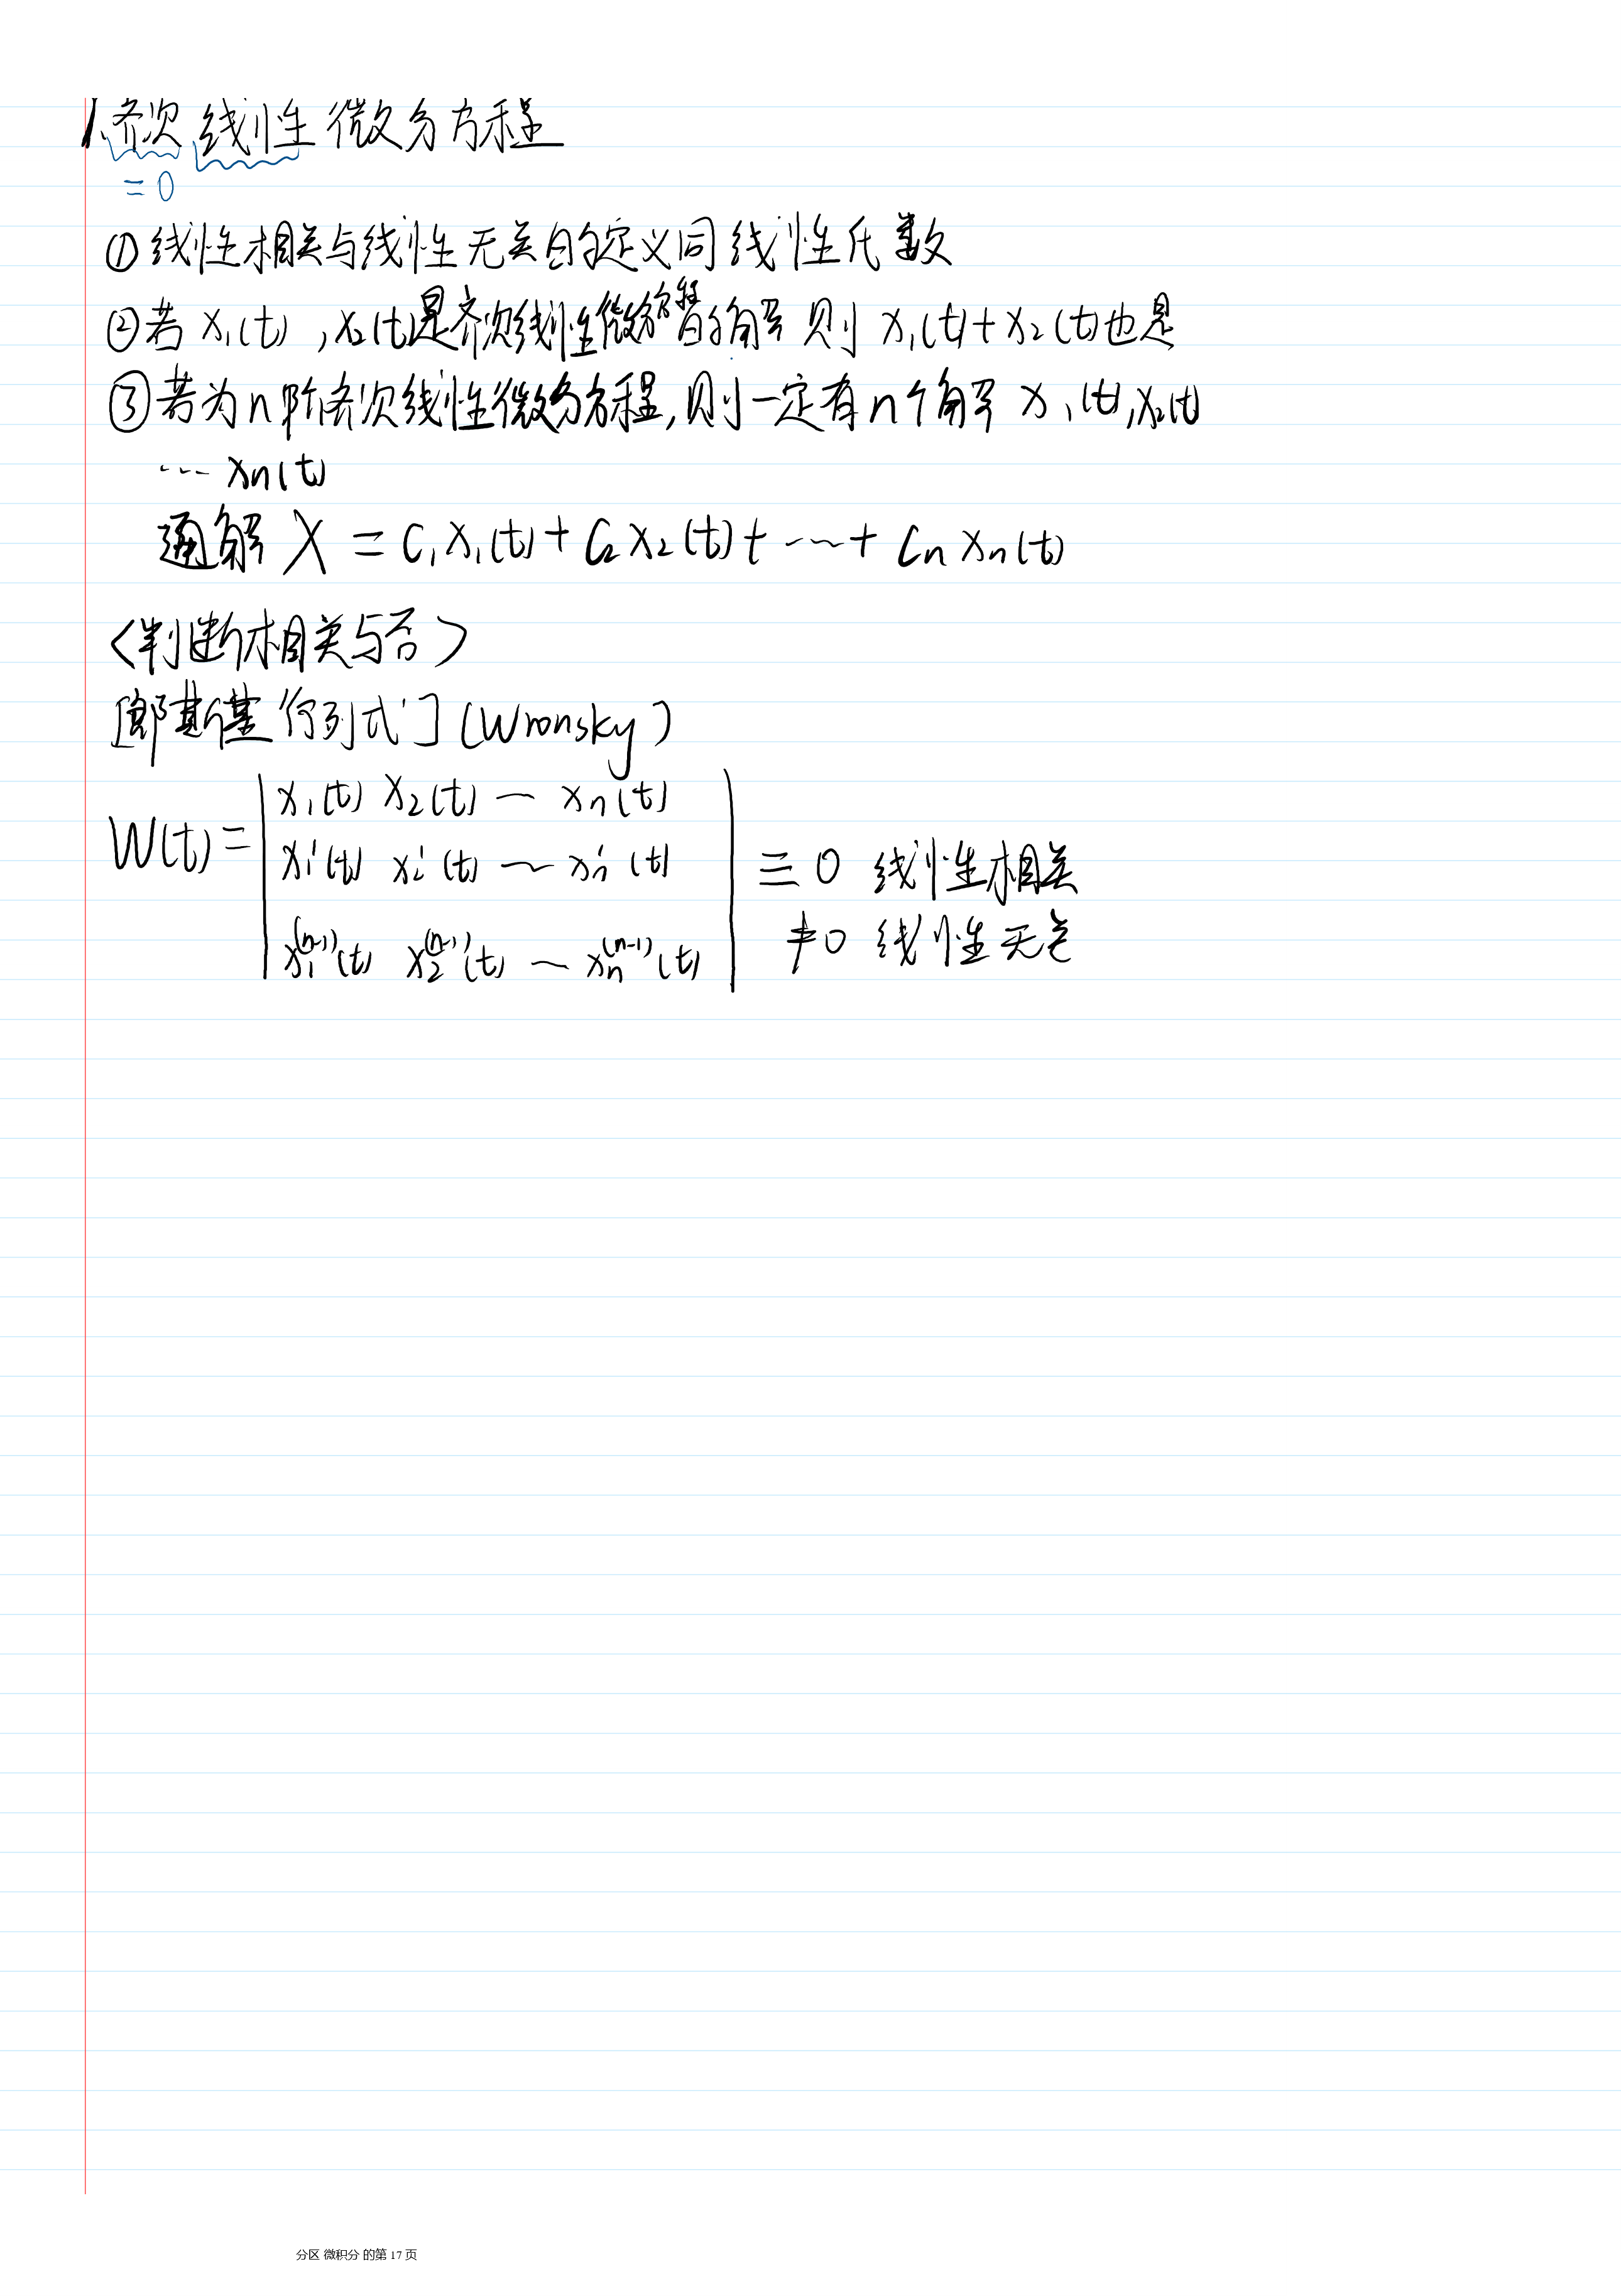 1.齐次 线性 微分方程
=0
①线性相关与线性无关的定义同线性代数
②若 x₁(t) , x₂(t)是齐次线性微分方程的解 则 x₁(t)+x₂(t)也是
③若为n阶齐次线性微分方程,则一定有n个解 x₁(t),x₂(t)
… xₙ(t)
通解 X = C₁x₁(t)+C₂x₂(t)+…+Cₙxₙ(t)
<判断相关与否>
[郎斯基行列式](Wronsky)
x₁(t) x₂(t) … xₙ(t)
W(t)= x₁'(t) x₂'(t) … xₙ'(t) ≡0 线性相关
x₁⁽ⁿ⁻¹⁾(t) x₂⁽ⁿ⁻¹⁾(t) … xₙ⁽ⁿ⁻¹⁾(t) ≠0 线性无关
分区 微积分 的第 17 页